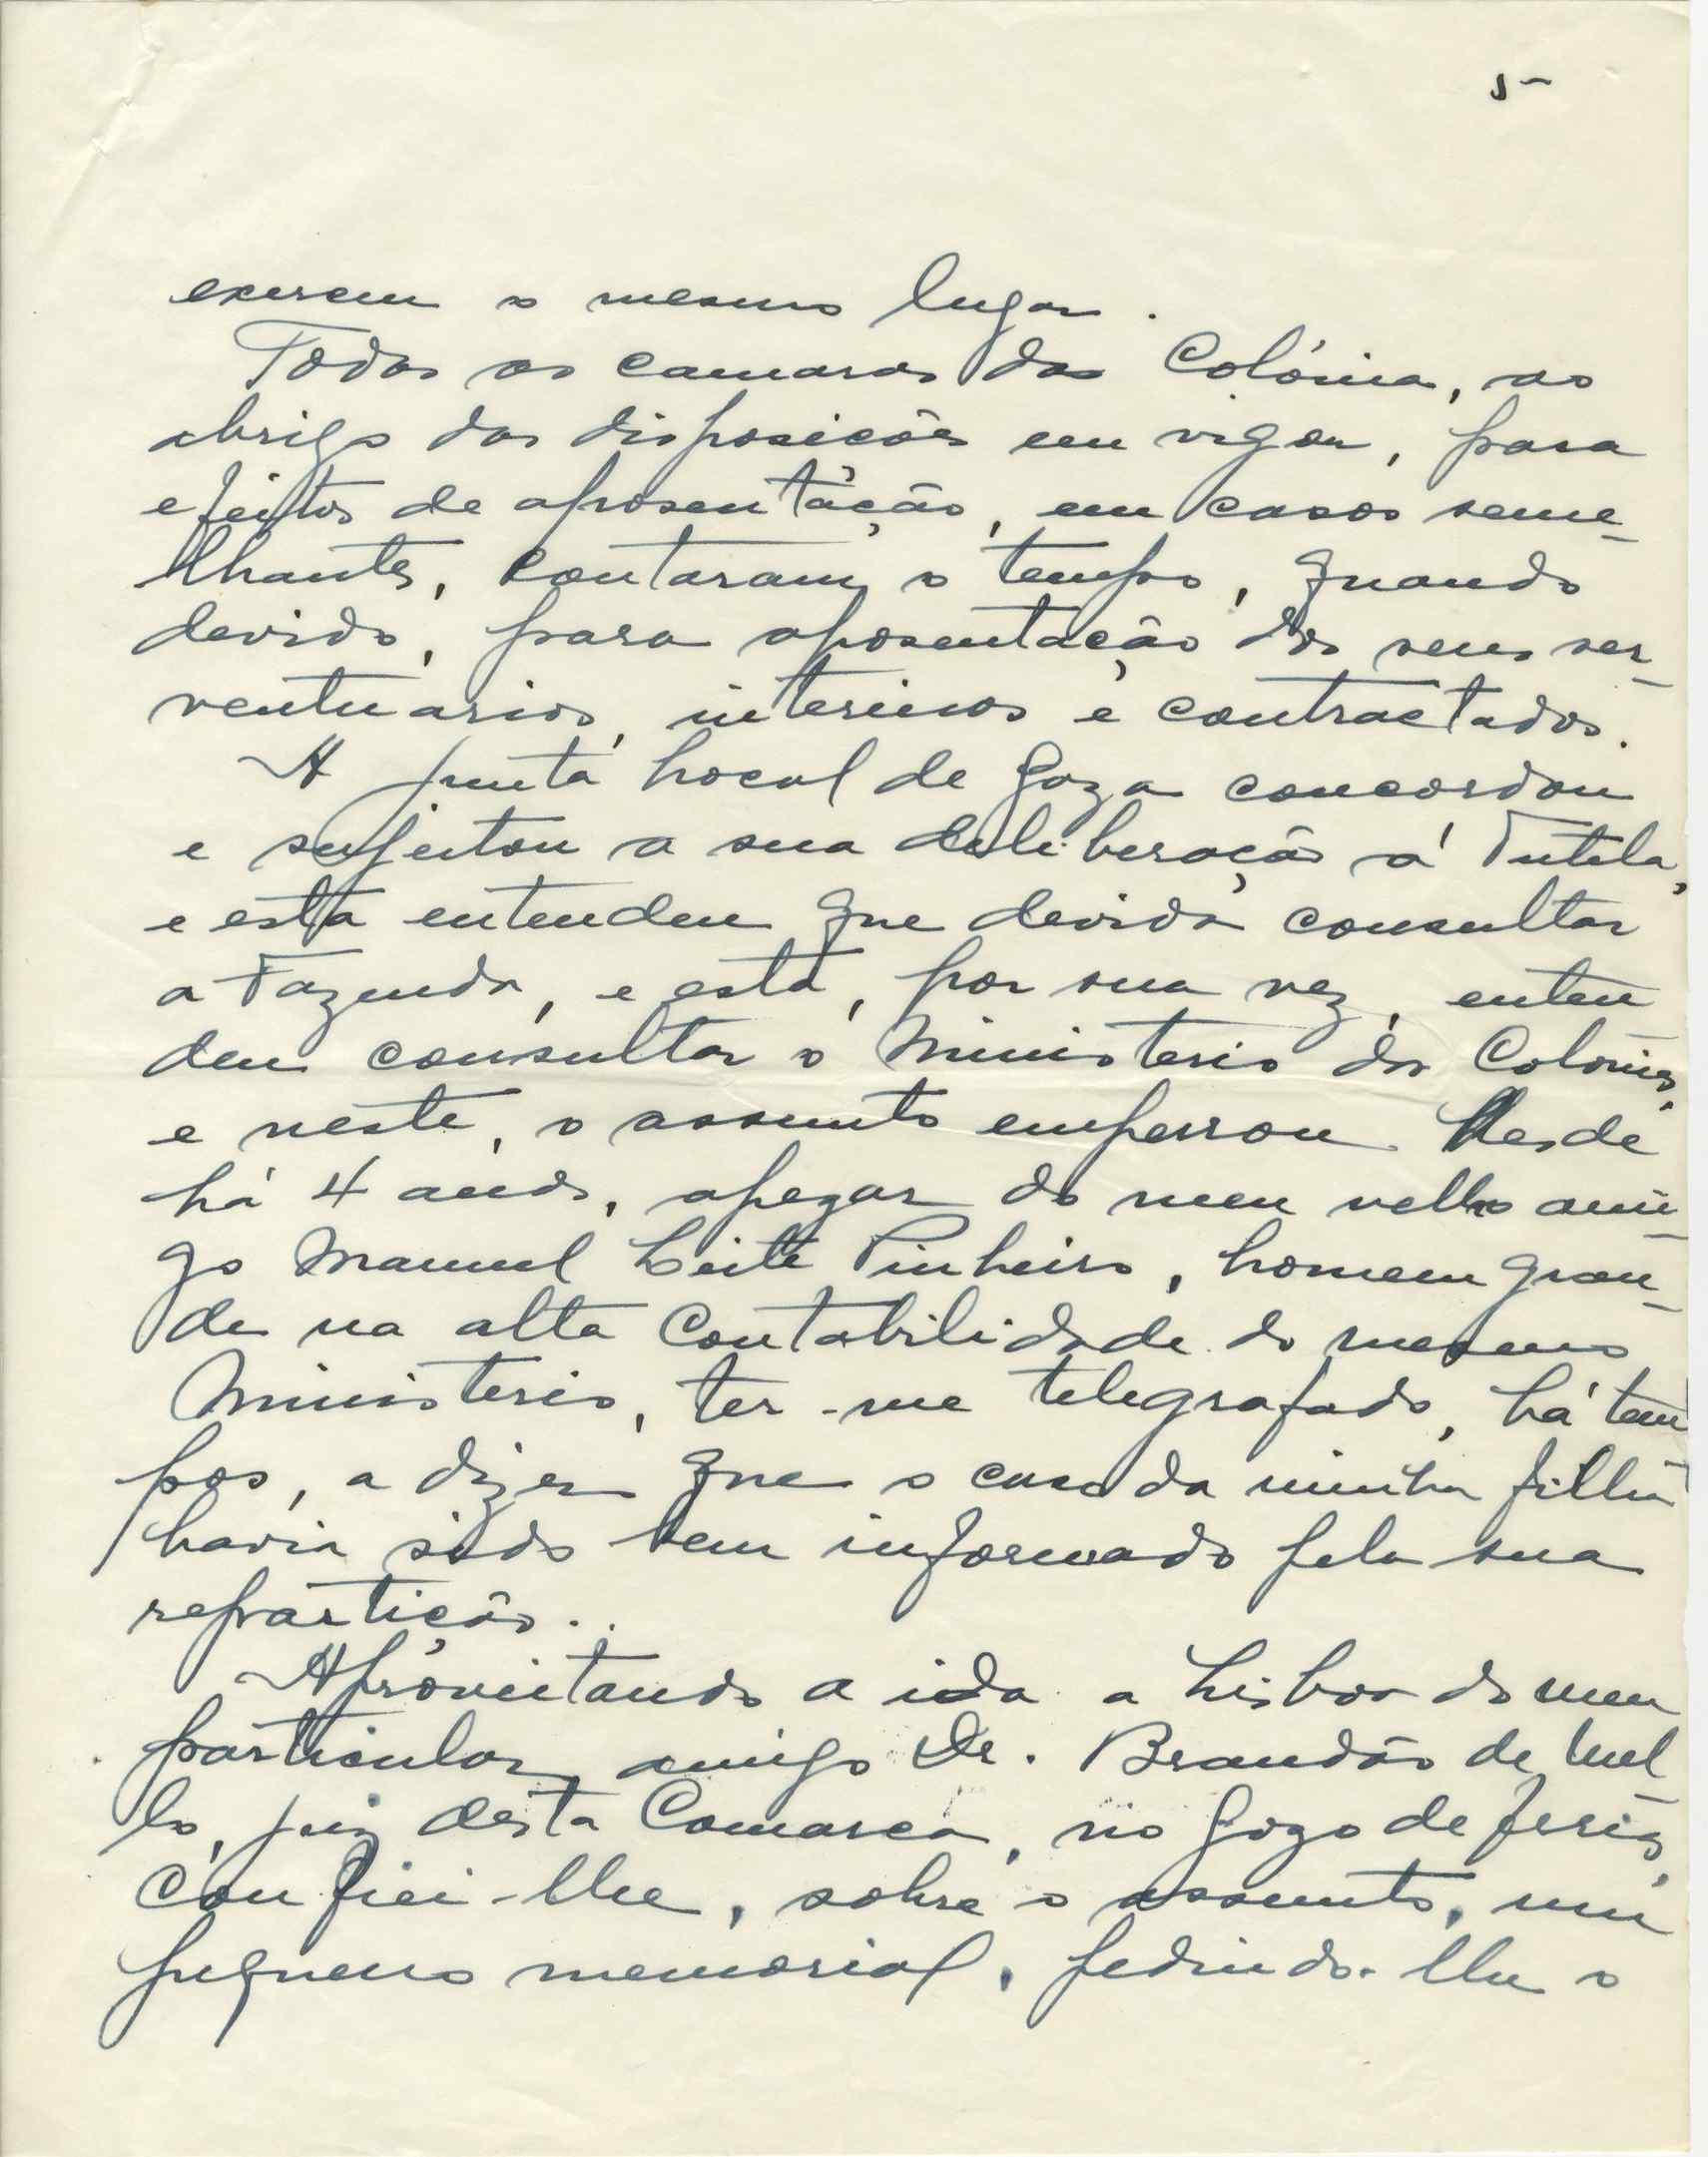 5
exercem o mesmo lugar.
Todas as camaras da Colónia, ao
abrigo das disposicões em vigor, para
efeitos de aposentação, em casos seme-
lhantes, contaram o tempo, quando
devido, para aposentação dos seus ser-
ventuarios, interinos e contractados.
A Junta Local de Gaza concordou
e sujeitou a sua deliberação á Tutela,
e esta entendeu que devida consultar
a Fazenda, e esta, por sua vez, enten
deu consultar o Ministerio das Colonias,
e neste, o assunto emperrou desde
há 4 anos, apezar do meu velho ami-
go Manuel Leite Pinheiro, homem gran-
de na alta Contabilidade do mesmo
Ministerio, ter-me telegrafado, há tem
pos, a dizer que o caso da minha filha
havia sido bem informado pela sua
repartição.
Aproveitando a ida a Lisboa do meu
particular amigo Dr. Brandão de Mel-
lo, juiz desta Comarca, no gozo de ferias,
confiei-lhe, sobre o assunto, um
pequeno memorial, pedindo-lhe o